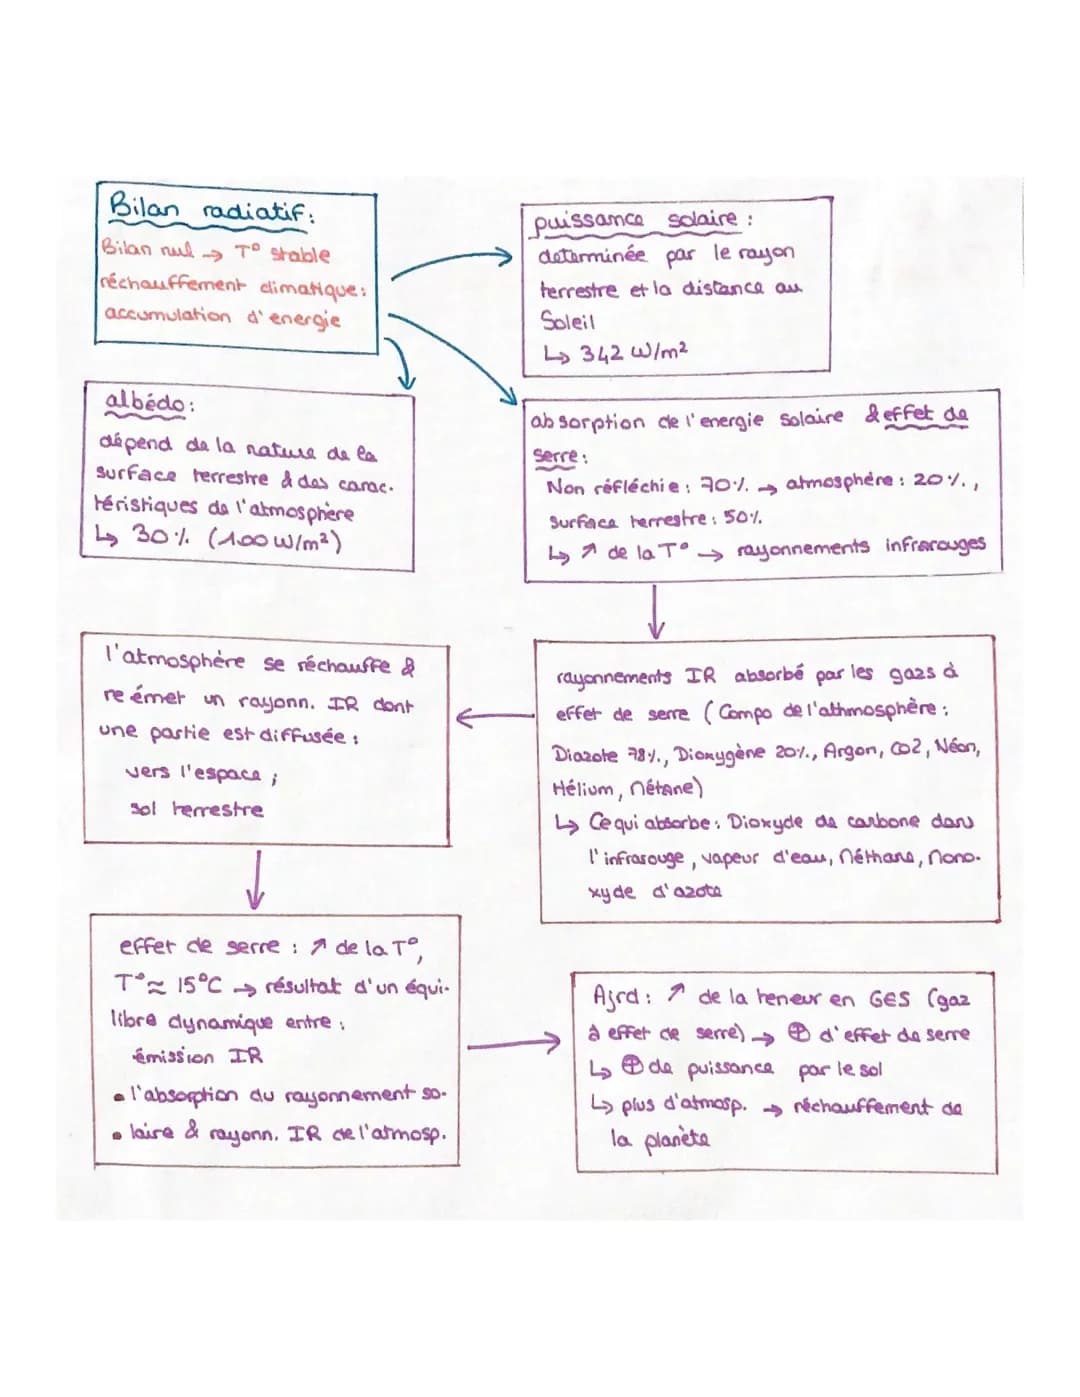 Bilan radiatif:
Bilan nul → T° stable
réchauffement climatique:
accumulation d'energie
puissance solaire :
determinée par le rayon
terrestre et la distance au
Soleil
↳ 342 W/m²
albédo:
dépend de la nature de la
surface terrestre & des carac-
téristiques de l'atmosphère
↳ 30% (100 W/m²)
absorption de l'energie solaire & effet de
serre:
Non réfléchie: 70% → atmosphère: 20%,
surface terrestre: 50%
↳ ↗ de la T° → rayonnements infrarouges
l'atmosphère se réchauffe &
re émet un rayonn. IR dont
une partie est diffusée:
vers l'espace ;
sol terrestre
rayonnements IR absorbé par les gazs à
effet de serre (Compo de l'athmosphère:
Diazote 78%, Dioxygène 20%, Argon, CO2, Néon,
Hélium, Métane)
↳ Ce qui absorbe: Dioxyde de carbone dans
l'infrarouge, vapeur d'eau, Méthane, Mono-
xyde d'azote
effet de serre : ↗ de la T°,
T° ≈ 15°C → résultat d'un équi-
libre dynamique entre:
émission IR
• l'absorption du rayonnement so-
• laire & rayonn. IR de l'atmosp.
Ajrd: ↗ de la teneur en GES (gaz
à effet de serre) → ⊕ d'effet de serre
↳ ⊕ de puissance par le sol
↳ plus d'atmosp. → réchauffement de
la planète